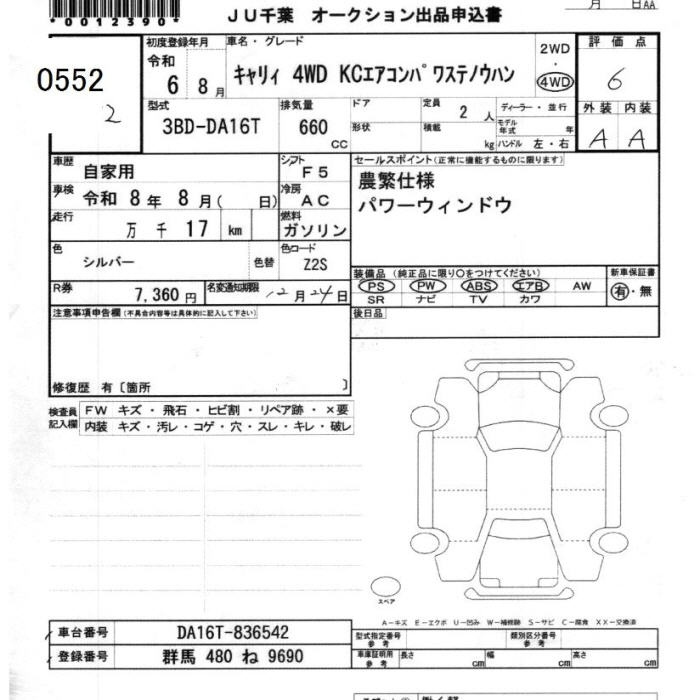 *0012390*
JU千葉 オークション出品申込書
月 日AA
0552
2
初度登録年月 車名・グレード 2WD 評価点
令和 6年 8月 キャリィ 4WD KCエアコンパワステノウハン ・ 4WD 6
型式 排気量 ドア 定員 2人 ディーラー・並行 外装 内装
3BD-DA16T 660 CC 形状 積載 kg モデル年式 年 ハンドル 左・右 A A
車歴 自家用 シフト F5 セールスポイント(正常に機能するものに限ります)
車検 令和 8年 8月( 日) 冷房 AC 農繁仕様
走行 万 千 17 km 燃料 ガソリン パワーウィンドウ
色 シルバー 色替 色コード Z2S
装備品(純正品に限り○をつけてください) 新車保証書
R券 7,360円 名変通知期限 12月24日 PS PW ABS エアB AW 有・無
SR ナビ TV カワ
注意事項申告欄(不具合内容等は具体的に記入して下さい) 後日品
修復歴 有〔箇所 〕
検査員記入欄 FW キズ・飛石・ヒビ割・リペア跡・×要
内装 キズ・汚レ・コゲ・穴・スレ・キレ・破レ
スペア
A−キズ E−エクボ U−凹み W−補修跡 S−サビ C−腐食 XX−交換済
車台番号 DA16T-836542 型式指定番号 参考 類別区分番号 参考
登録番号 群馬 480 ね 9690 車庫証明用 参考 長さ cm 幅 cm 高さ cm